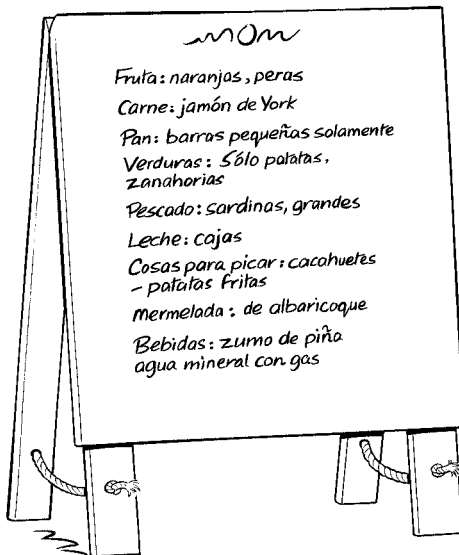 Fruta: naranjas, peras
Carne: jamón de York
Pan: barras pequeñas solamente
Verduras: Sólo patatas,
zanahorias
Pescado: sardinas, grandes
Leche: cajas
Cosas para picar: cacahuetes
- patatas fritas
Mermelada: de albaricoque
Bebidas: zumo de piña
agua mineral con gas